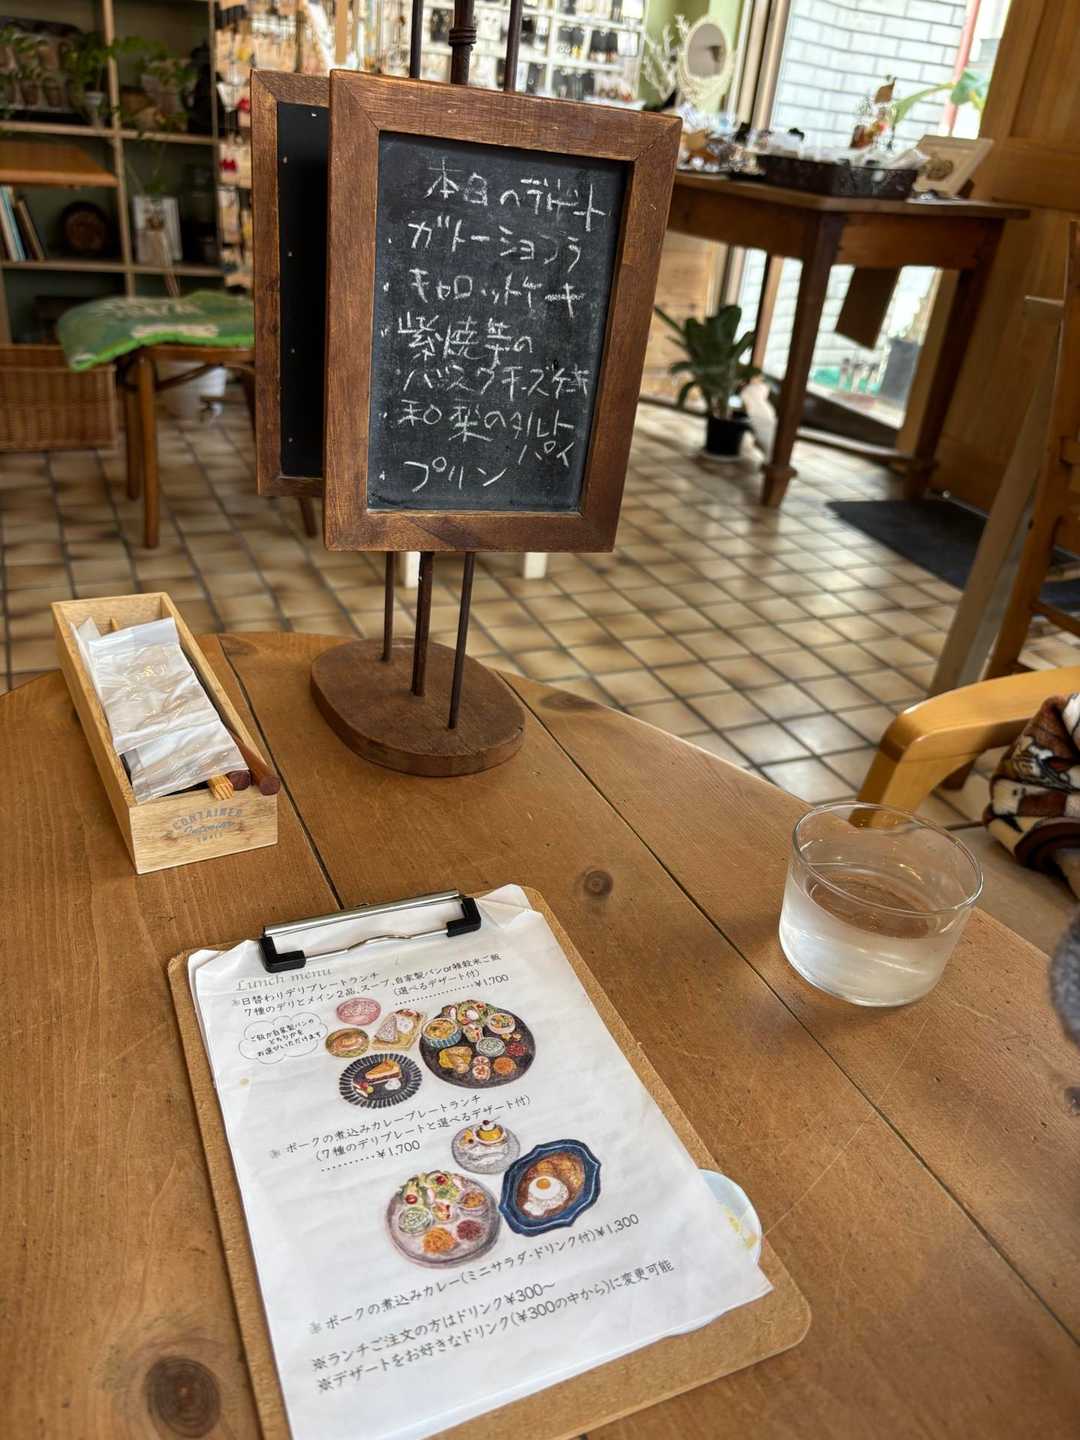 本日のデザート
・ガトーショコラ
・キャロットケーキ
・紫焼芋の
バスクチーズ
・和梨のタルト
パイ
・プリン
CONTAINER
Interior
Lunch menu
❋日替わりデリプレートランチ
7種のデリとメイン2品、スープ、自家製パンor雑穀米ご飯
(選べるデザート付)
..................¥1,700
ご飯か自家製パンの
どちらかを
お選びいただけます
❋ポークの煮込みカレープレートランチ
(7種のデリプレートと選べるデザート付)
..........¥1,700
❋ポークの煮込みカレー(ミニサラダ・ドリンク付)¥1,300
※ランチご注文の方はドリンク¥300〜
※デザートをお好きなドリンク(¥300の中から)に変更可能